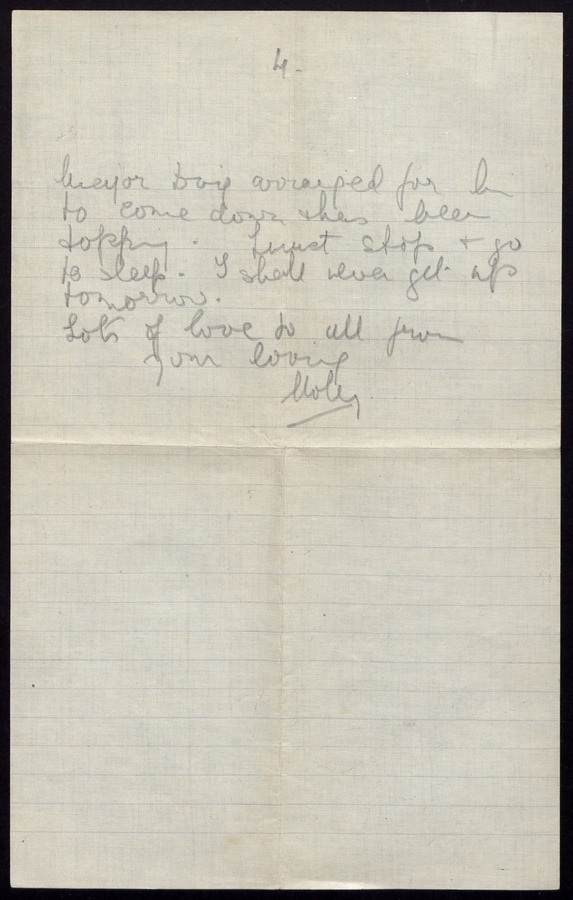 4.
Major Doig arranged for him
to come down & has been
topping. I must stop & go
to sleep. I shall never get up
tomorrow.
Lots of love to all from
your loving